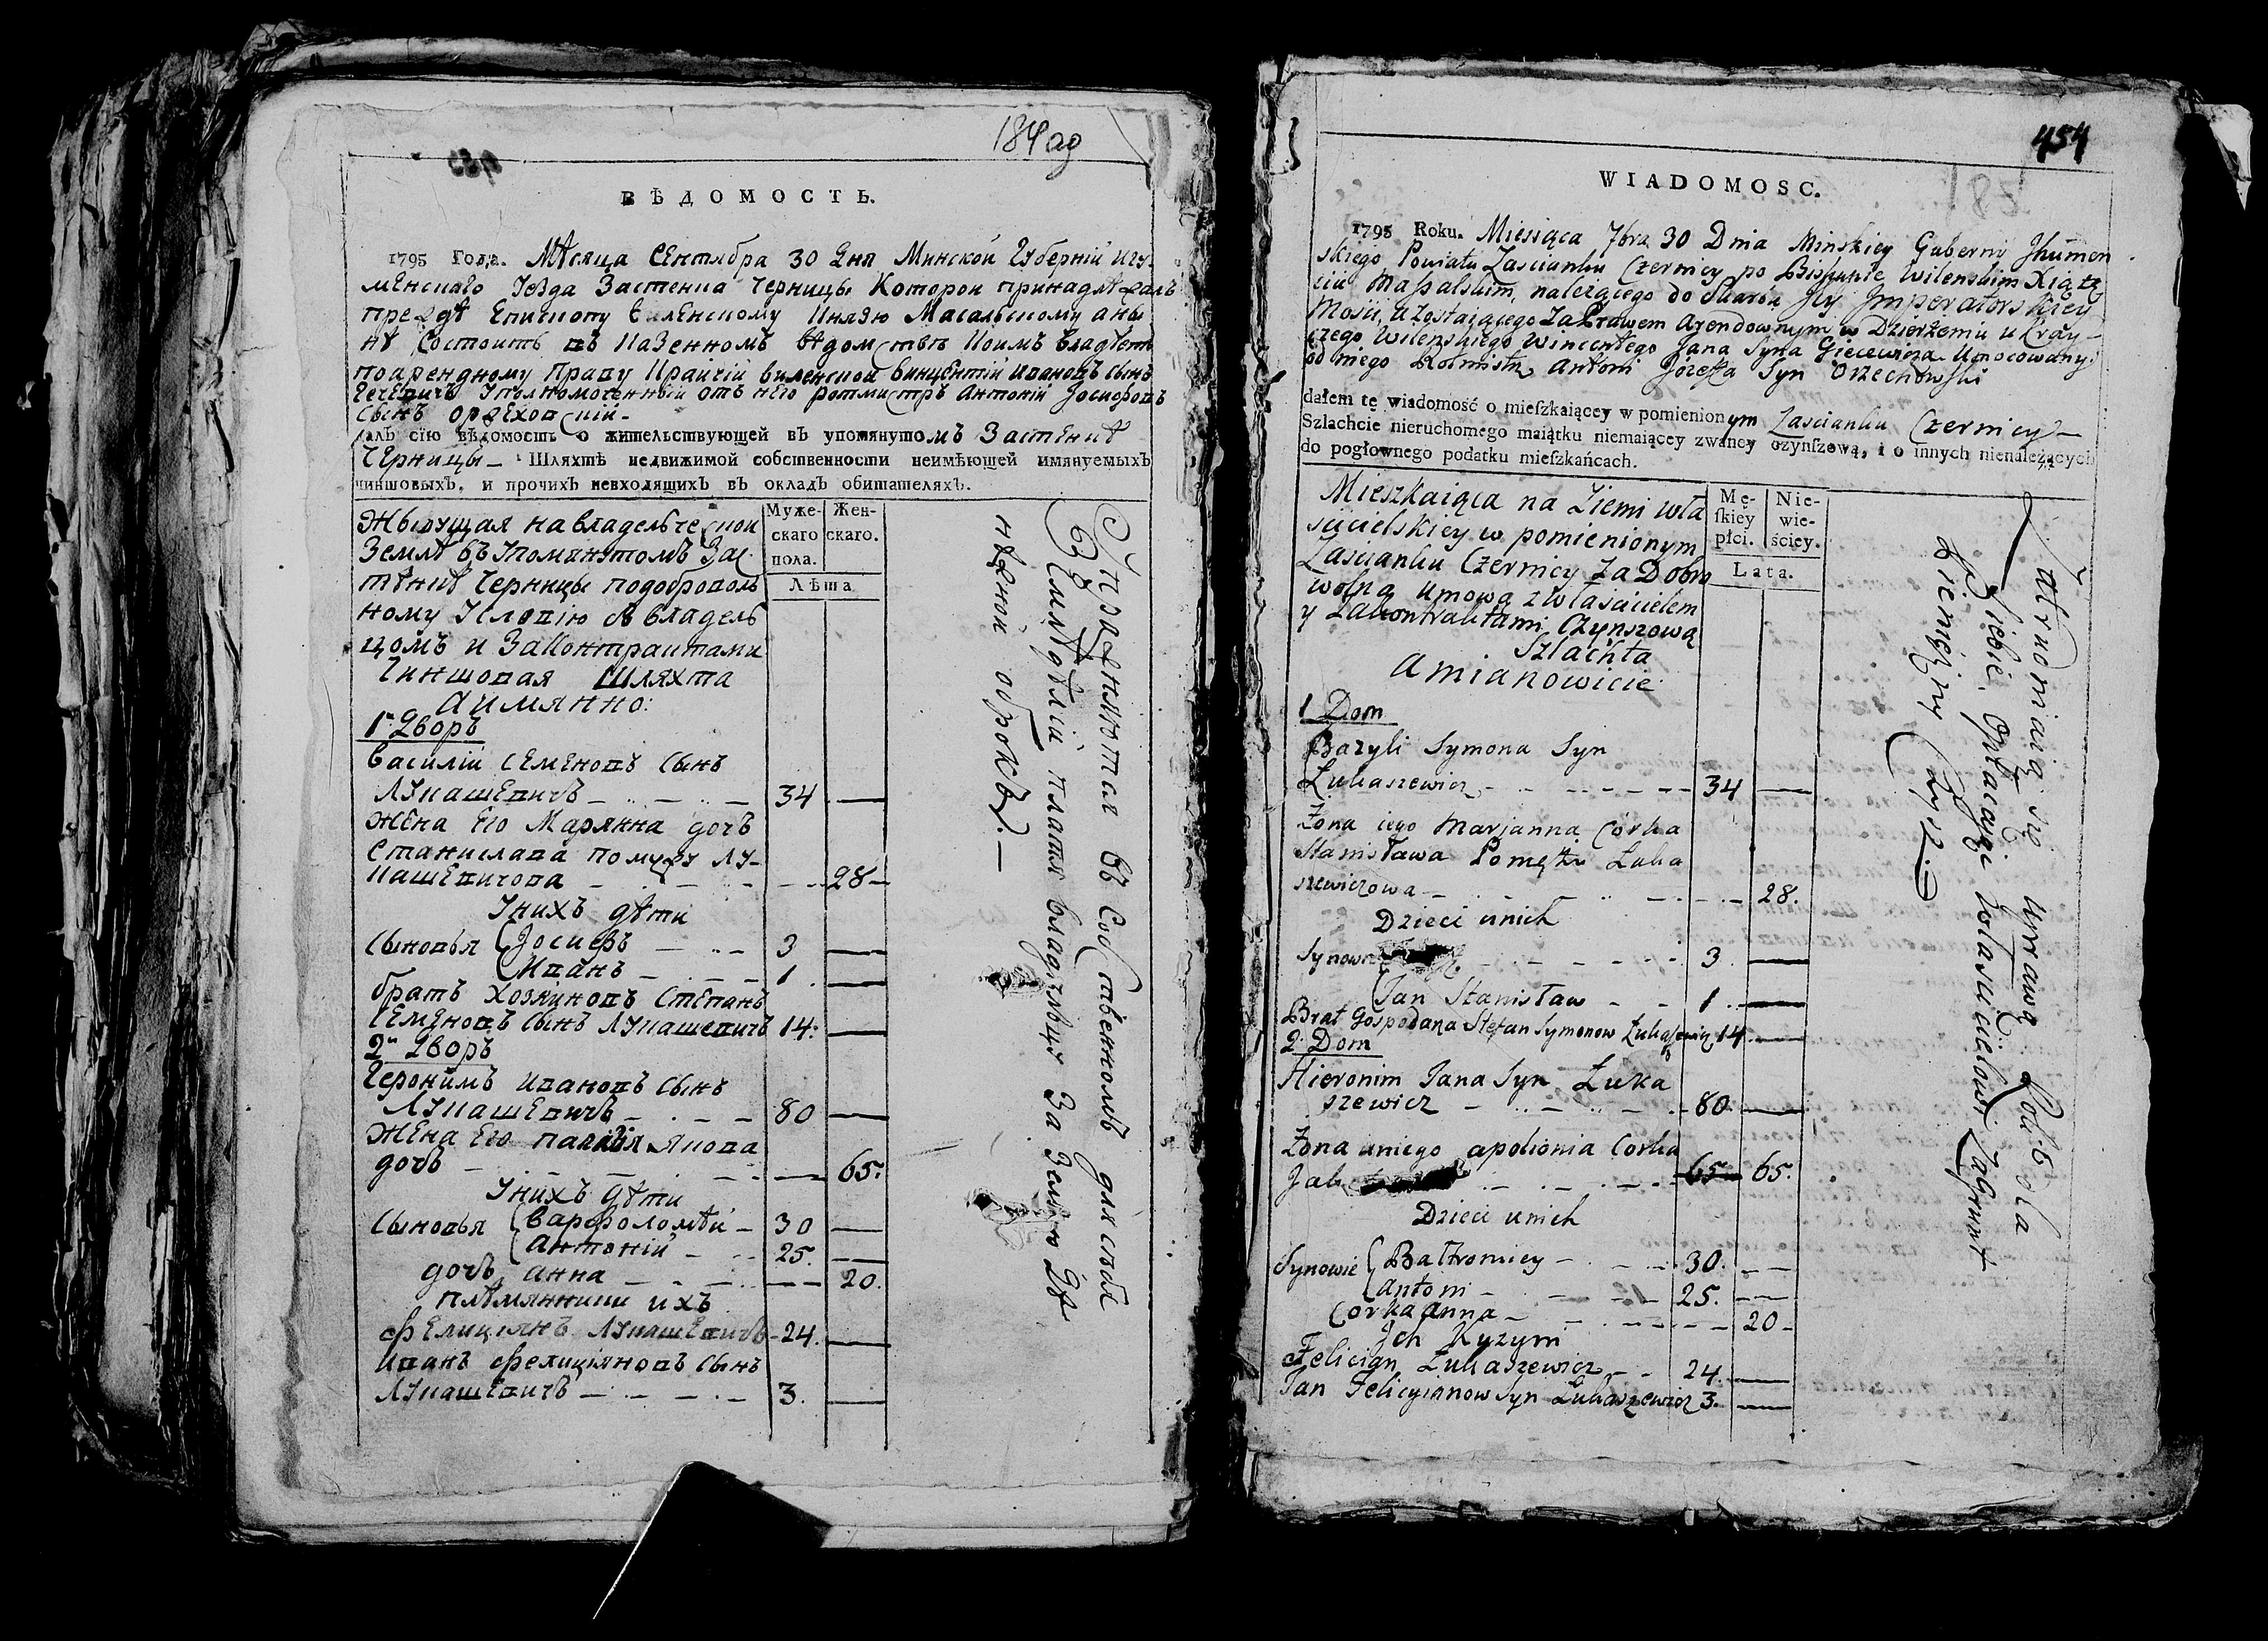 184 ад
ВѢДОМОСТЬ.
1795 Года. Мѣсяца Сентября 30 Дня Минской Губерній Игу-
менскаго Уезда Застенка Черницы Которой принадлѣжалъ
прежде Епископу Виленскому Князю Масальскому аны
нѣ Состоитъ въ Казенномъ вѣдомствѣ Коимъ владѣетъ
поарендному Праву Крайчій виленской Винцентій Ивановъ Сынъ
Гецевичъ Уполномоченный отъ него ротмистръ Антоній Іосифовъ
Сынъ Оржеховскій-
далъ сїю вѣдомость о жительствующей въ упомянутомъ Застенкѣ
Черницы- Шляхтѣ недвижимой собственности неимѣющей имянуемыхъ
чиншовыхъ, и прочихъ невходящихъ въ окладъ обитателяхъ.
Муже-
скаго
пола.
Жен-
скаго.
Лѣта
Живущая на владельческой
Землѣ въ Упомянутомъ Зас
тѣнкѣ Черницы подоброволь
ному Условію съ владель
цомъ и Законтрактами
Чиншовая Шляхта
Аимянно:
1й Дворъ
Василій Семеновъ Сынъ
Лукашевичъ - 34 —
Жена Его Марянна дочь
Станислава Помужу Лу-
кашевичова - 28 —
Унихъ дѣти
Сыновья Іосифъ - 3 —
Иванъ - 1 —
братъ Хозяиновъ Степанъ
Семеновъ Сынъ Лукашевичъ 14: —
2й Дворъ
Героними Ивановъ Сынъ
Лукашевичъ - 80 —
Жена Его Якова
дочь - 65.
Унихъ дѣти
Сыновья Варфоломѣй - 30 —
Антоній - 25. —
дочь Анна - 20.
племянники ихъ
Фелиціянъ Лукашевичъ - 24. —
Иванъ Фелиціяновъ Сынъ
Лукашевичъ - 3. —
Упражняются въ Собственномъ для себя
Земледѣліи платя владѣльцу За Землю Де
нежной оброкъ. —
454
185
WIADOMOSC.
1795 Roku. Miesiąca 7bra 30 Dnia Minskiey Gubernii Jhumen
skiego Powiatu Zascianku Czernicy po Biskupie Wilenskim Xiążę
ciu Maſsalskim, należącego do Skarbu Jey Jmperatorskiey
Mosci, a Zostaiącego Za Prawem Arendownym w Dzierżeniu u Kray-
czego Wilenskiego Wincentego Jana Syna Giecewicza Umocowany
od niego Rotmistrz Antoni Jozefa Syn Orzechowski
dałem tę wiadomość o mieſzkaiącey w pomienionym Zascianku Czernicy-
Szlachcie nieruchomego maiątku niemaiącey zwaney czynſzową, i o innych nienależących
do pogłownego podatku mieſzkańcach.
Mę-
ſkiey
płci.
Nie-
wie-
ściey.
Lata.
Mieszkaiąca na Ziemi wła
scicielskiey w pomienionym
Zascianku Czernicy Za Dobro
wolną umową z właścicielem
y Zakontraktami Czynszową
Szlachta
Amianowicie
1 Dom
Bazyli Symona Syn
Łukaszewicz - 34 —
Żona iego Marjanna Corka
Stanisława Pomężu Łuka
szewiczowa - 28.
Dzieci unich
Synowie - 3 —
Jan Stanisław - 1 —
Brat Gospodarza Stefan Symonow Łukaszewicz 14 —
2. Dom
Hieronim Jana Syn Łuka
szewicz - 80. —
Żona uniego Apolionia Corka
Jak - 65 65.
Dzieci unich
Synowie Bałtromiey - 30. —
Antoni - 25. —
Corka Anna - 20 -
Jch Kyzym
Felician Łukaszewicz - 24. —
Jan Felicyianow Syn Łukaszewicz 3. —
Zatrudniaią się uprawą Roli dla
Siebie, Opłacaiąc właścicielowi Zagrunt
Pieniężny Czynsz.